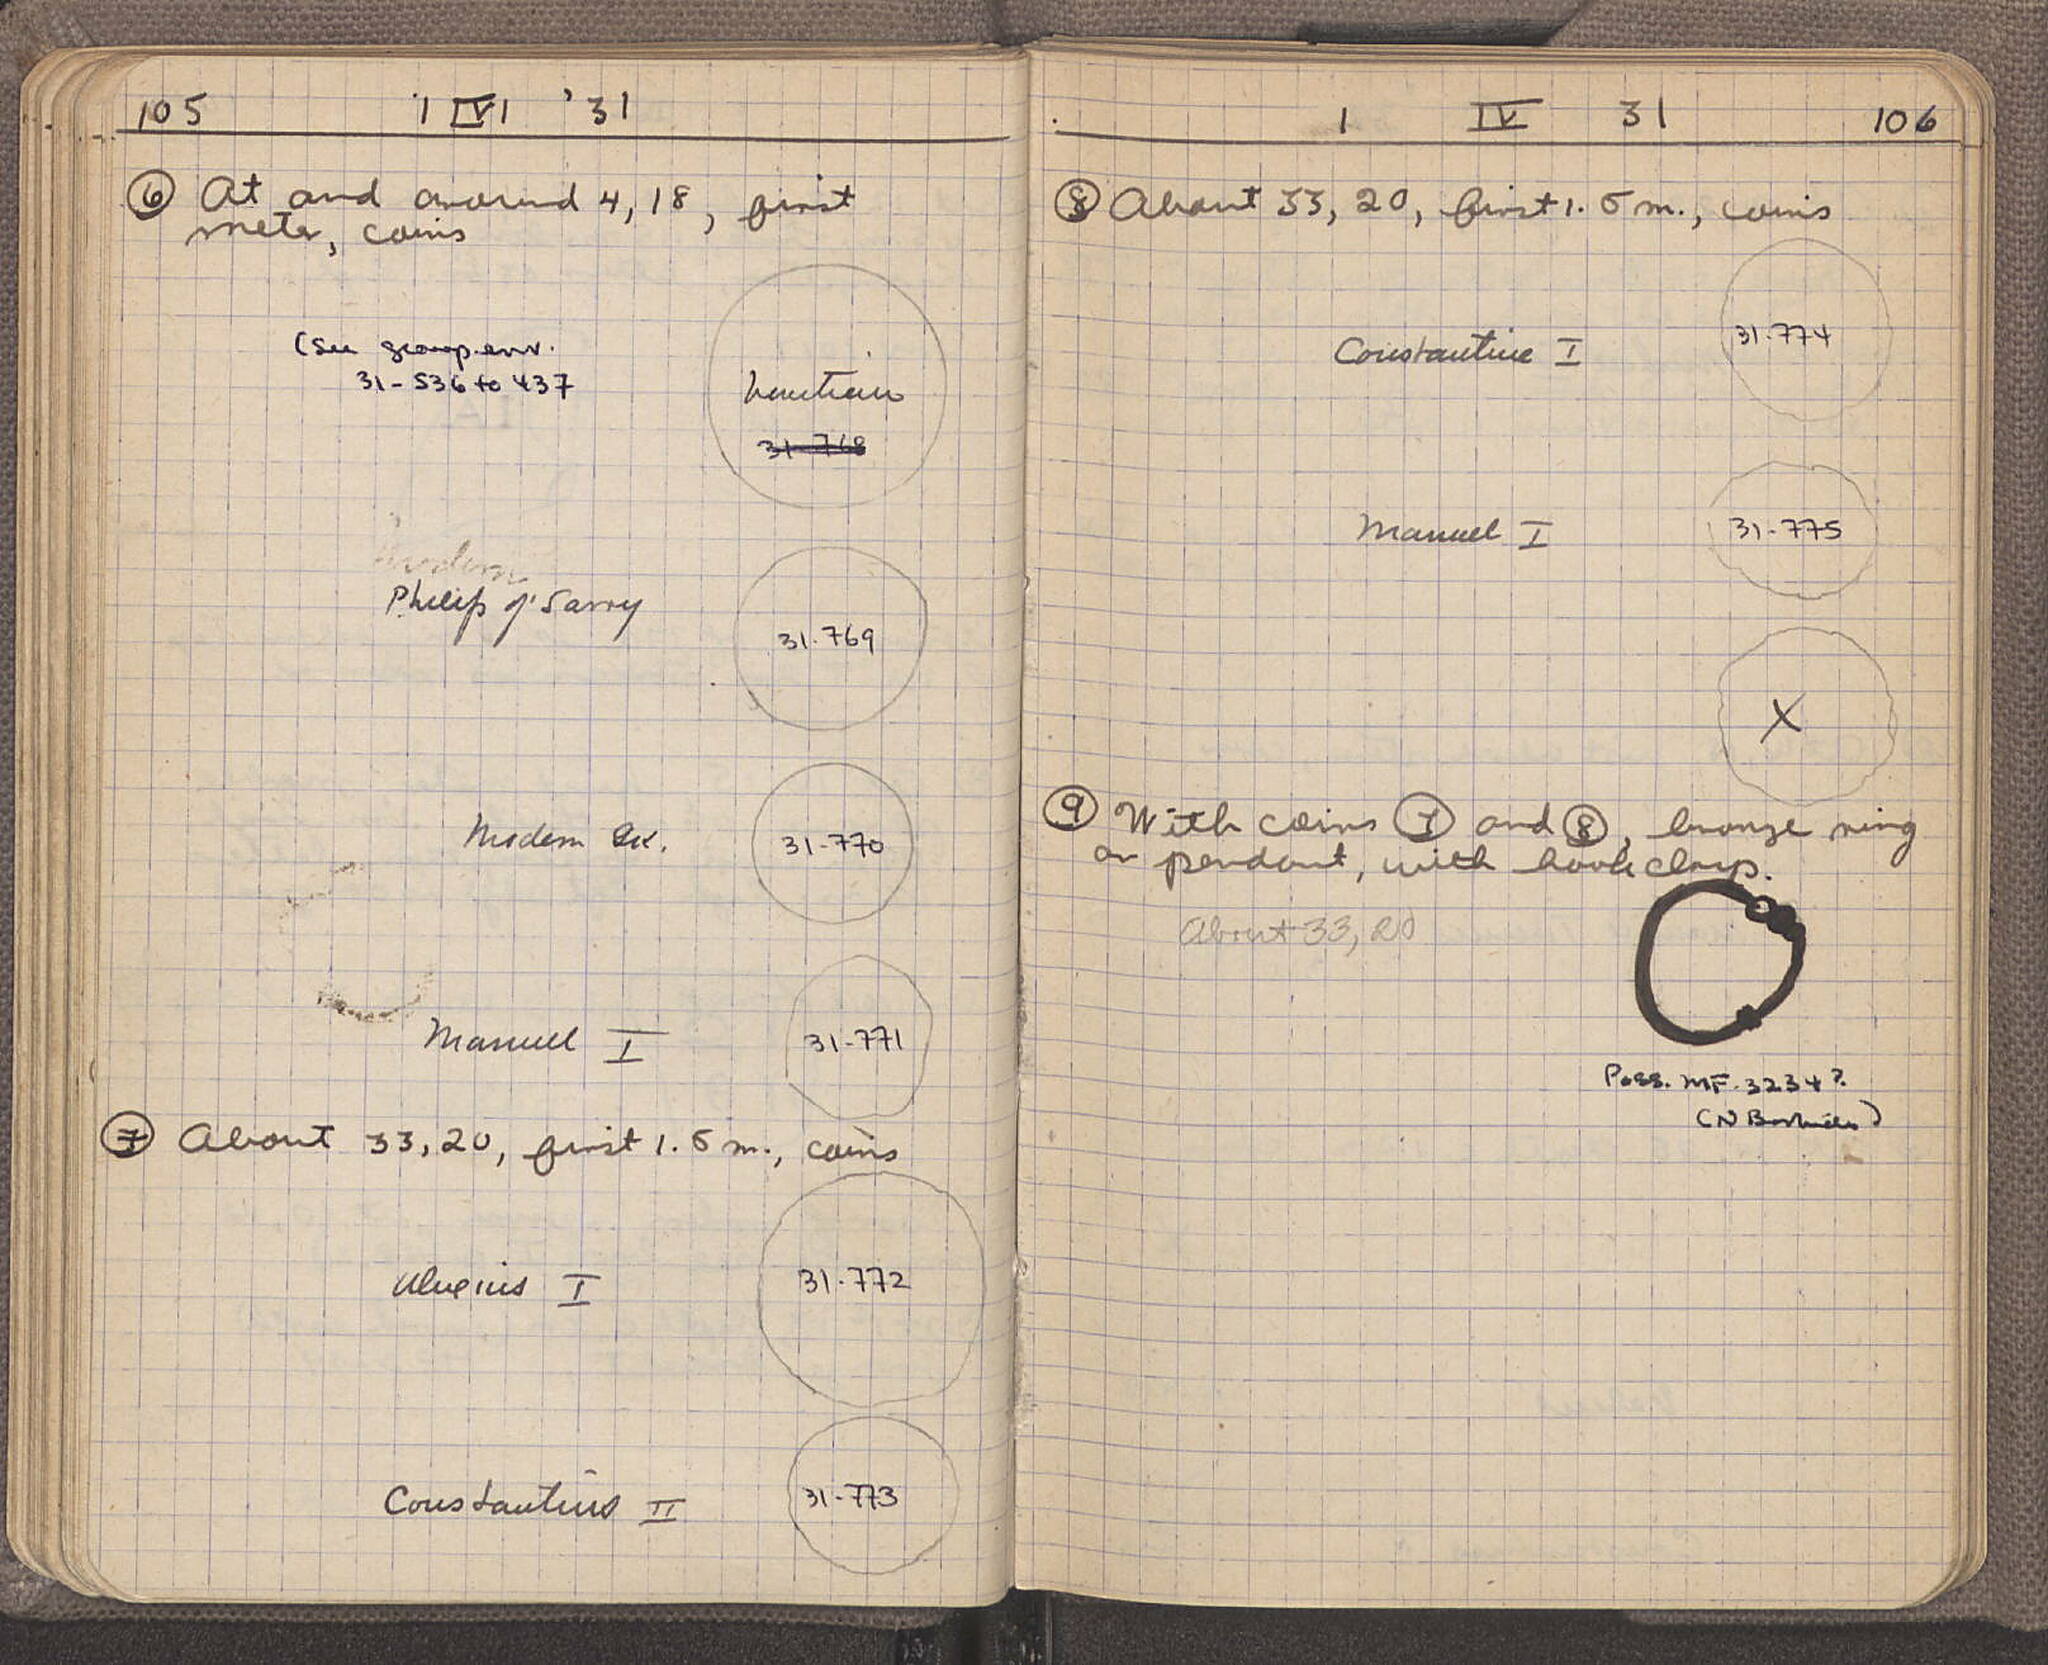 105 1 IV '31
⑥ At and around 4, 18, first
meter, coins
(See group env.
31-536 to 437
Venetian
31-768
Modern
Philip of Savoy
31-769
Modern Gk.
31-770
Manuel I
31-771
⑦ About 33, 20, first 1.5 m., coins
Alexius I
31-772
Constantius II
31-773
1 IV 31 106
⑧ About 33, 20, first 1.5 m., coins
Constantine I
31-774
Manuel I
31-775
X
⑨ With coins ⑦ and ⑧, bronze ring
or pendant, with hook clasp.
About 33, 20
Poss. MF. 3234?
(N Bookidis)